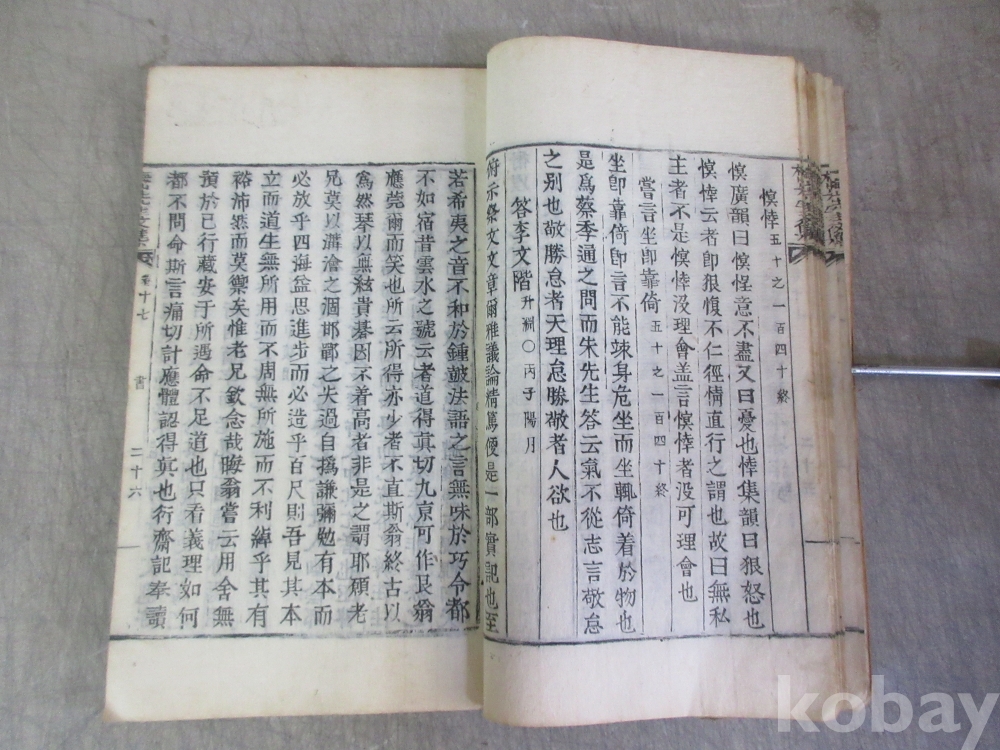 慏悻五十之一百四十終
慏廣韻曰慏悜意不盡又曰憂也悻集韻曰狠怒也
慏悻云者卽狠愎不仁徑情直行之謂也故曰無私
主者不是慏悻没理會盖言慏悻者没可理會也
嘗言坐卽靠倚五十之一百四十終
坐卽靠倚卽言不能竦身危坐而坐輒倚着於物也
是爲蔡季通之問而朱先生答云氣不從志言敬怠
之別也敬勝怠者天理怠勝敬者人欲也
答李文階升澗○丙子陽月
俯示桑文文章爾雅議論精篤便是一部實記也至
若希夷之音不和於鍾皷法語之言無味於巧令都
不如宿昔雲水之號云者道得真切九京可作艮翁
應莞爾而笑也所云所得亦少者不直斯翁終古以
爲然琴以無絃貴碁因不着高者非是之謂耶碩老
兄莫以溝澮之涸邯鄲之失過自撝謙彌勉有本而
必放乎四海益思進步而必造乎百尺則吾見其本
立而道生無所用而不周無所施而不利綽乎其有
裕沛然而莫禦矣惟老兄欽念哉晦翁嘗云用舍無
預於己行藏安于所遇命不足道也只看義理如何
都不問命斯言痛切計應體認得真也衍齋記奉讀
卷十七
書
二十六
kobay